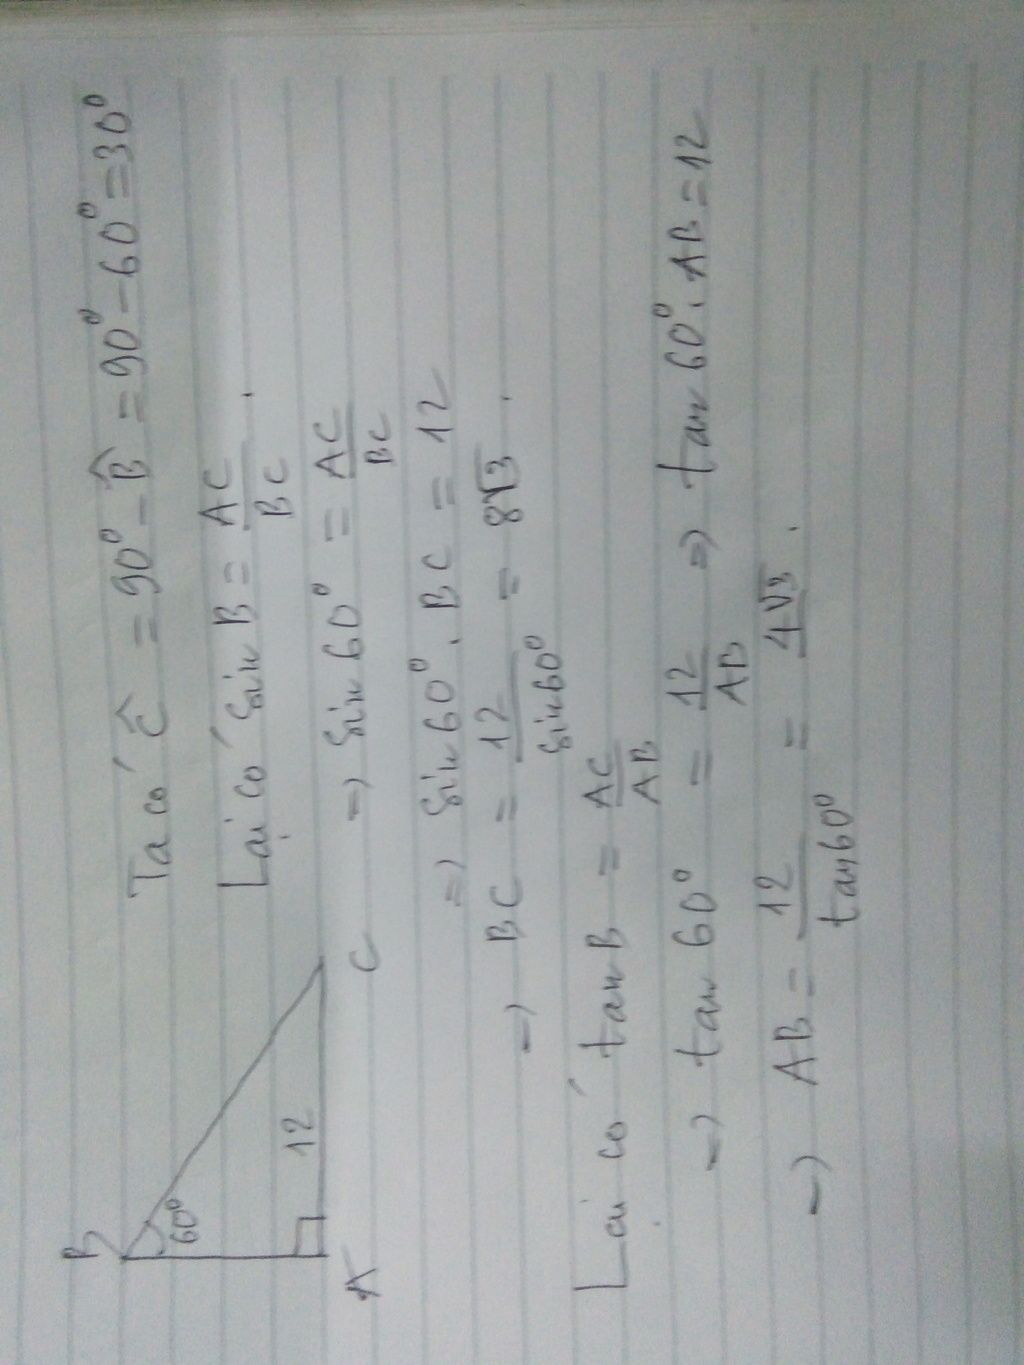 B
60°
12
A
C
Ta có Ĉ = 90° - B̂ = 90° - 60° = 30°
Lại có sin B = AC/BC.
=> sin 60° = AC/BC
=> sin 60° . BC = 12
=> BC = 12/sin 60° = 8√3.
Lại có tan B = AC/AB
=> tan 60° = 12/AB => tan 60° . AB = 12
=> AB = 12/tan 60° = 4√3.